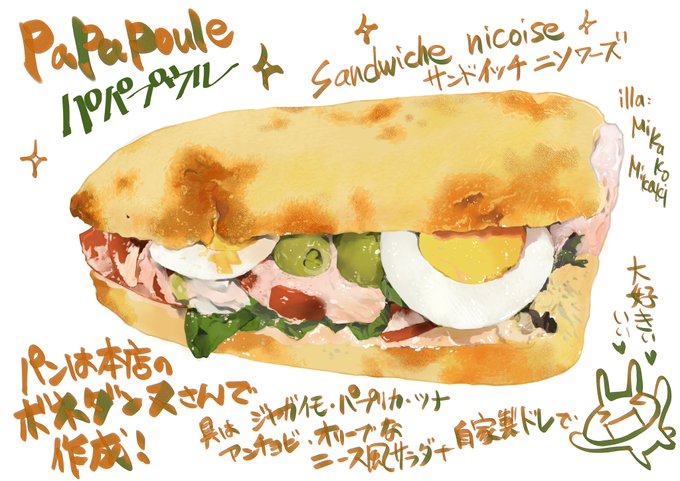 PaPaPoule
パパプウル
Sandwiche nicoise
サンドイッチ ニソワーズ
illa:
Mikako
Mikaki
大好きぃ
いい
パンは本店の
ボネダンヌさんで
作成!
具は ジャガイモ・パプリカ・ツナ
アンチョビ・オリーブな
ニース風サラダ+自家製ドレで